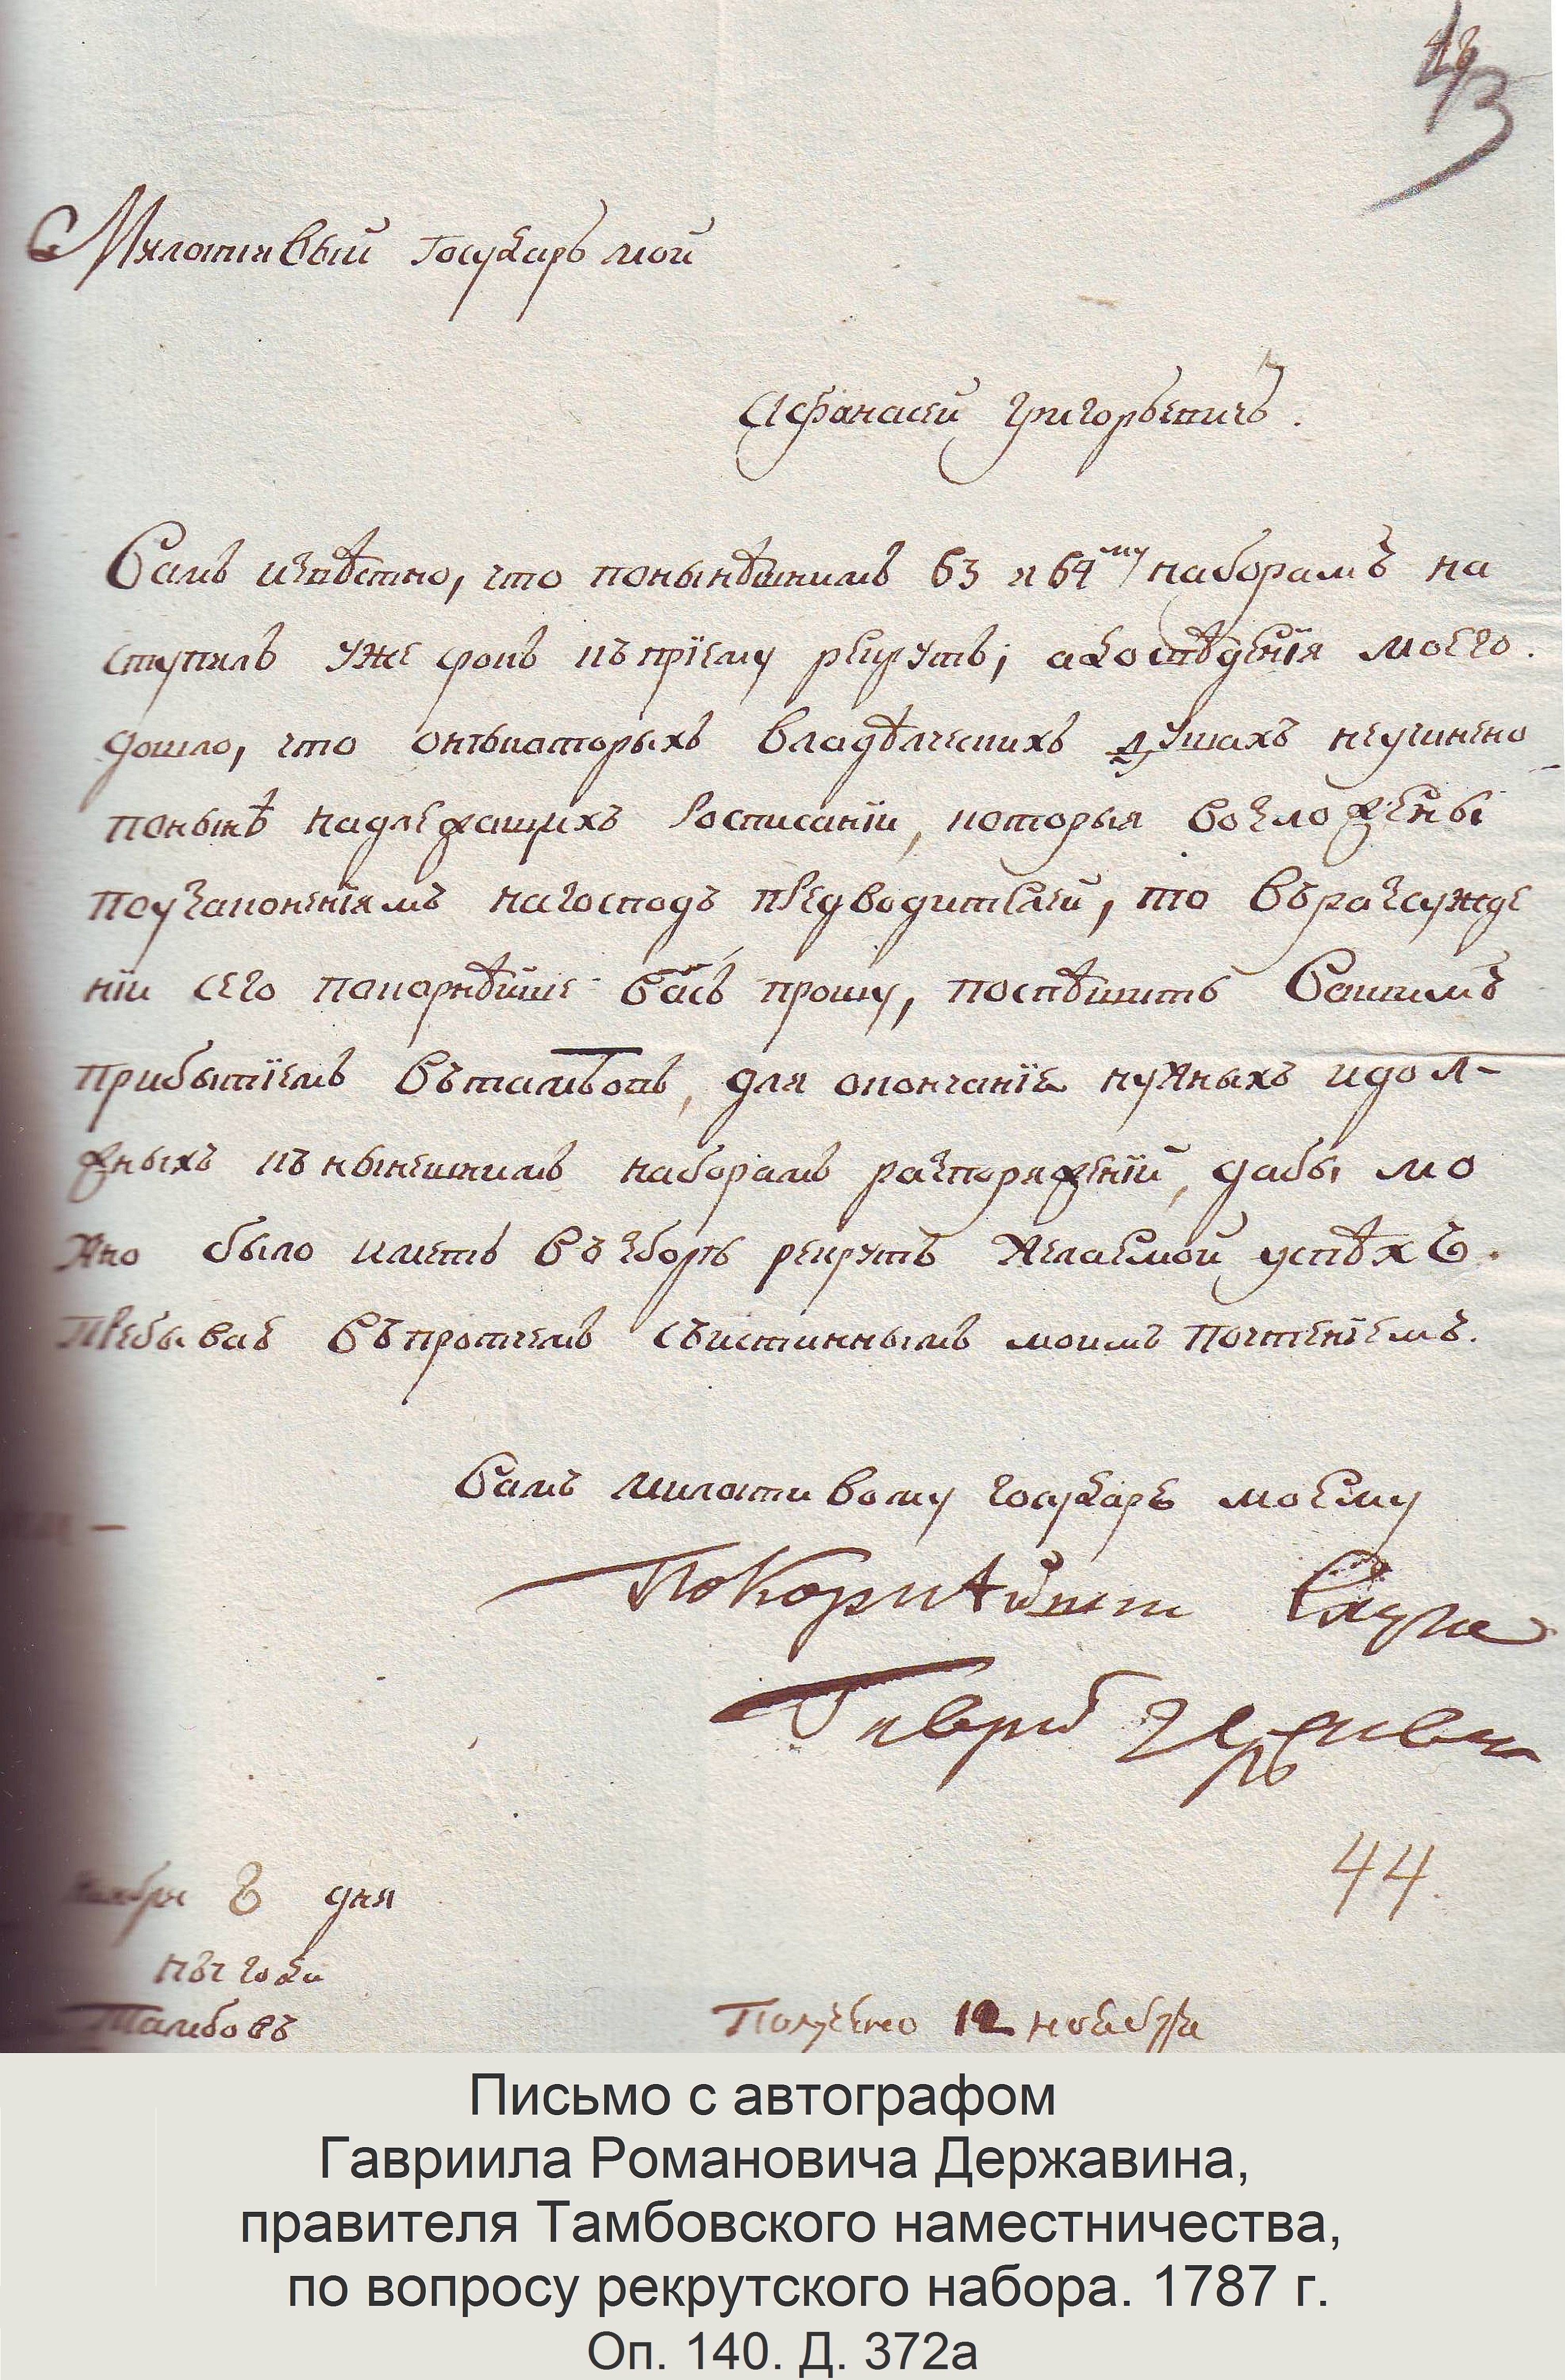 43
Милостивый Государь мой
Афанасей Григорьевичь.
Вамъ извѣстно, что понынѣшнимъ 63 и 64му наборамъ на
ступилъ уже срокъ къ пріему рекрутъ; а досвѣденія моего.
дошло, что онѣкоторыхъ владѣлческихъ душахъ неучинено
понынѣ надлежащихъ Росписаніи, которыя возложены
поузаконеніямъ нагосподъ предводителей, то въразсужде
ніи сего покорнѣйше васъ прошу, поспѣшить Вашимъ
прибытіемъ вътамбовъ, для окончаніе нужныхъ идол-
жныхъ къ нынешнимъ наборамъ распоряженій, дабы мо
жно было иметь въ зборѣ рекрутъ желаемой успѣхъ.
Пребывая въпротчемъ съистиннымъ моимъ почтеніемъ.
Вамъ милостивому государю моему
Покорнѣйши Слуга
Гаврiлъ Державин
44.
Ноября 8 дня
1787 года
Тамбовъ
Получено 12 ноября
Письмо с автографом
Гавриила Романовича Державина,
правителя Тамбовского наместничества,
по вопросу рекрутского набора. 1787 г.
Оп. 140. Д. 372а